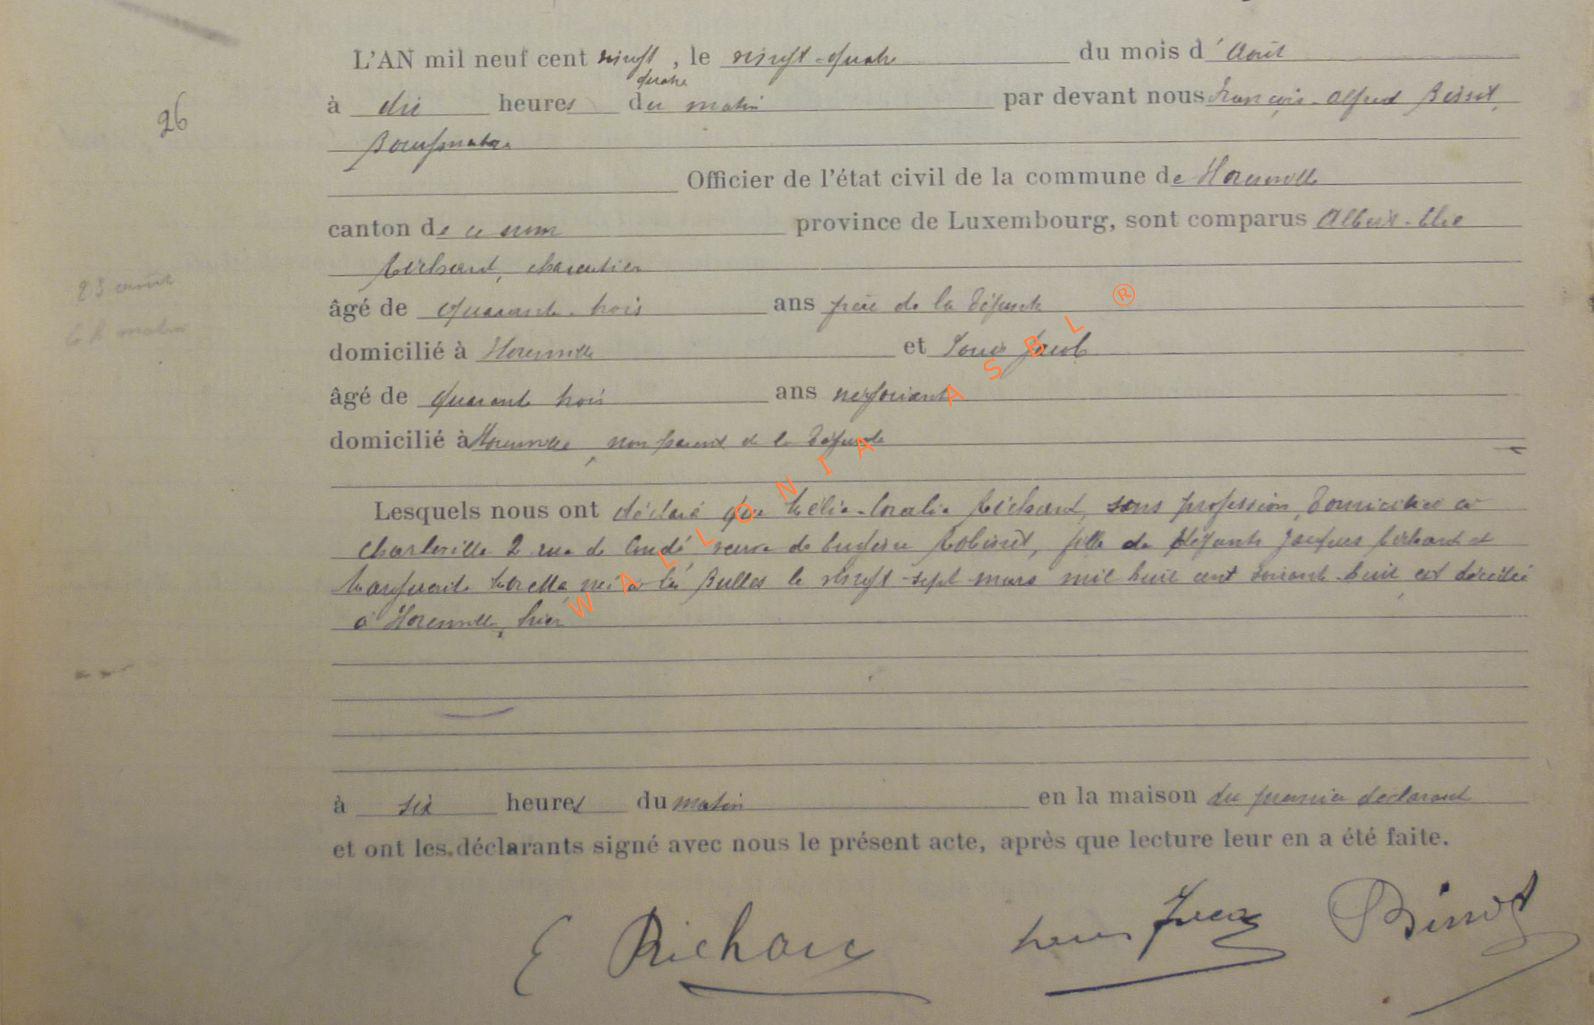 L'AN mil neuf cent vingt quatre, le vingt-quatre du mois d'Août
26
à dix heures du matin par devant nous François-Alfred Bissot,
Bourgmestre
Officier de l'état civil de la commune de Florenville
canton de ce nom province de Luxembourg, sont comparus Albert-Elie
Richard, charcutier
23 août
6 h matin
âgé de quarante-trois ans frère de la défunte
domicilié à Florenville et Louis Jacob
âgé de quarante trois ans négociant
domicilié à Florenville, non parent de la défunte
Lesquels nous ont déclaré que Célie-Coralie Richard, sans profession, domiciliée à
Charleville 2 rue de Condé veuve de Eugène Robinet, fille de défunts Jacques Richard et
Marguerite née à les Bulles le vingt-sept mars mil huit cent soixante-huit, est décédée
à Florenville, hier
à six heures du matin en la maison du premier déclarant
et ont les déclarants signé avec nous le présent acte, après que lecture leur en a été faite.
E Richard Louis Jacob Bissot
WALLONIA ASBL ®